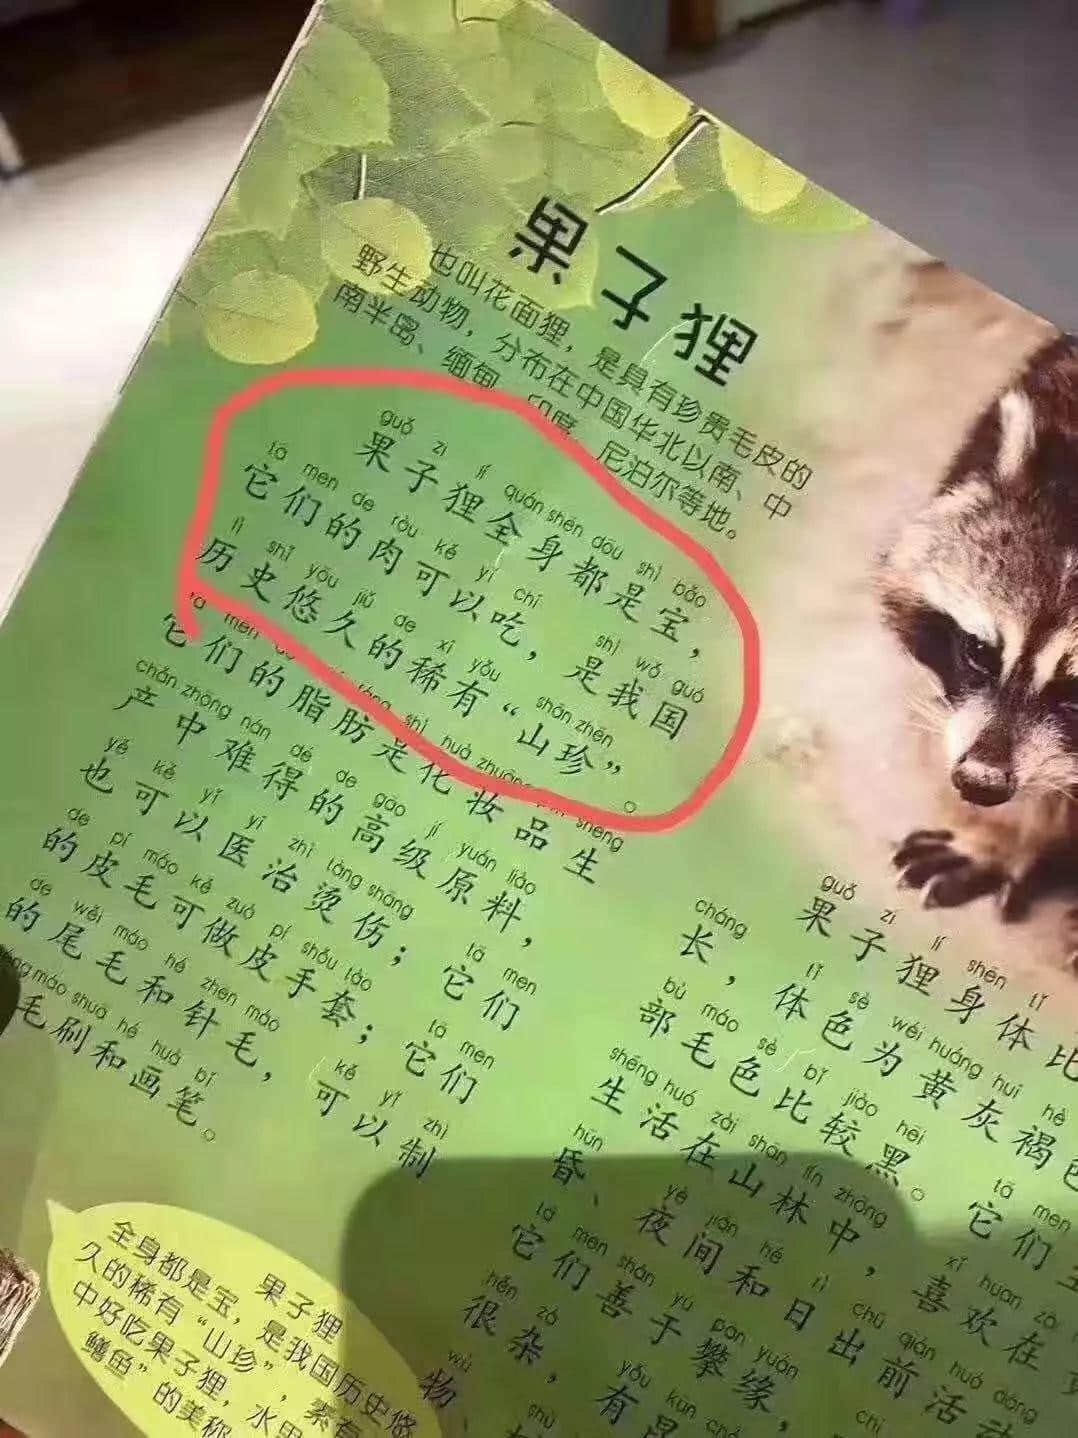 果子狸
也叫花面狸，是具有珍贵毛皮的
野生动物，分布在中国华北以南、中
南半岛、缅甸、印度、尼泊尔等地。
guǒ zi lí quán shēn dōu shì bǎo
果子狸全身都是宝，
tā men de ròu kě yǐ chī shì wǒ guó
它们的肉可以吃，是我国
lì shǐ yōu jiǔ de xī yǒu shān zhēn
历史悠久的稀有“山珍”。
tā men shì huà zhuāng shēng
它们的脂肪是化妆品生
chǎn zhōng nán dé de gāo jí yuán liào
产中难得的高级原料，
yě kě yǐ yī zhì tàng shāng tā men
也可以医治烫伤；它们
de pí máo kě zuò pí shǒu tào tā men
的皮毛可做皮手套；它们
de wěi máo hé zhēn máo kě yǐ zhì
的尾毛和针毛，可以制
máo shuā hé huà bǐ
毛刷和画笔。
果子狸
全身都是宝，是我国历史悠
久的稀有“山珍”，素有
中好吃果子狸，水里
鳝鱼”的美称
guǒ zi lí shēn tǐ
果子狸身体比
cháng tǐ sè wéi huáng huī hè
长，体色为黄灰褐色
bù máo sè bǐ jiào hēi tā men
部毛色比较黑。它们
shēng huó zài shān lín zhōng xǐ huan zài
生活在山林中，喜欢在
hūn yè jiān hé rì chū qián huó dòng
昏、夜间和日出前活动
tā men shàn yú pān yuán
它们善于攀缘，
hěn zá yǒu kūn
很杂，有昆
wù
物、